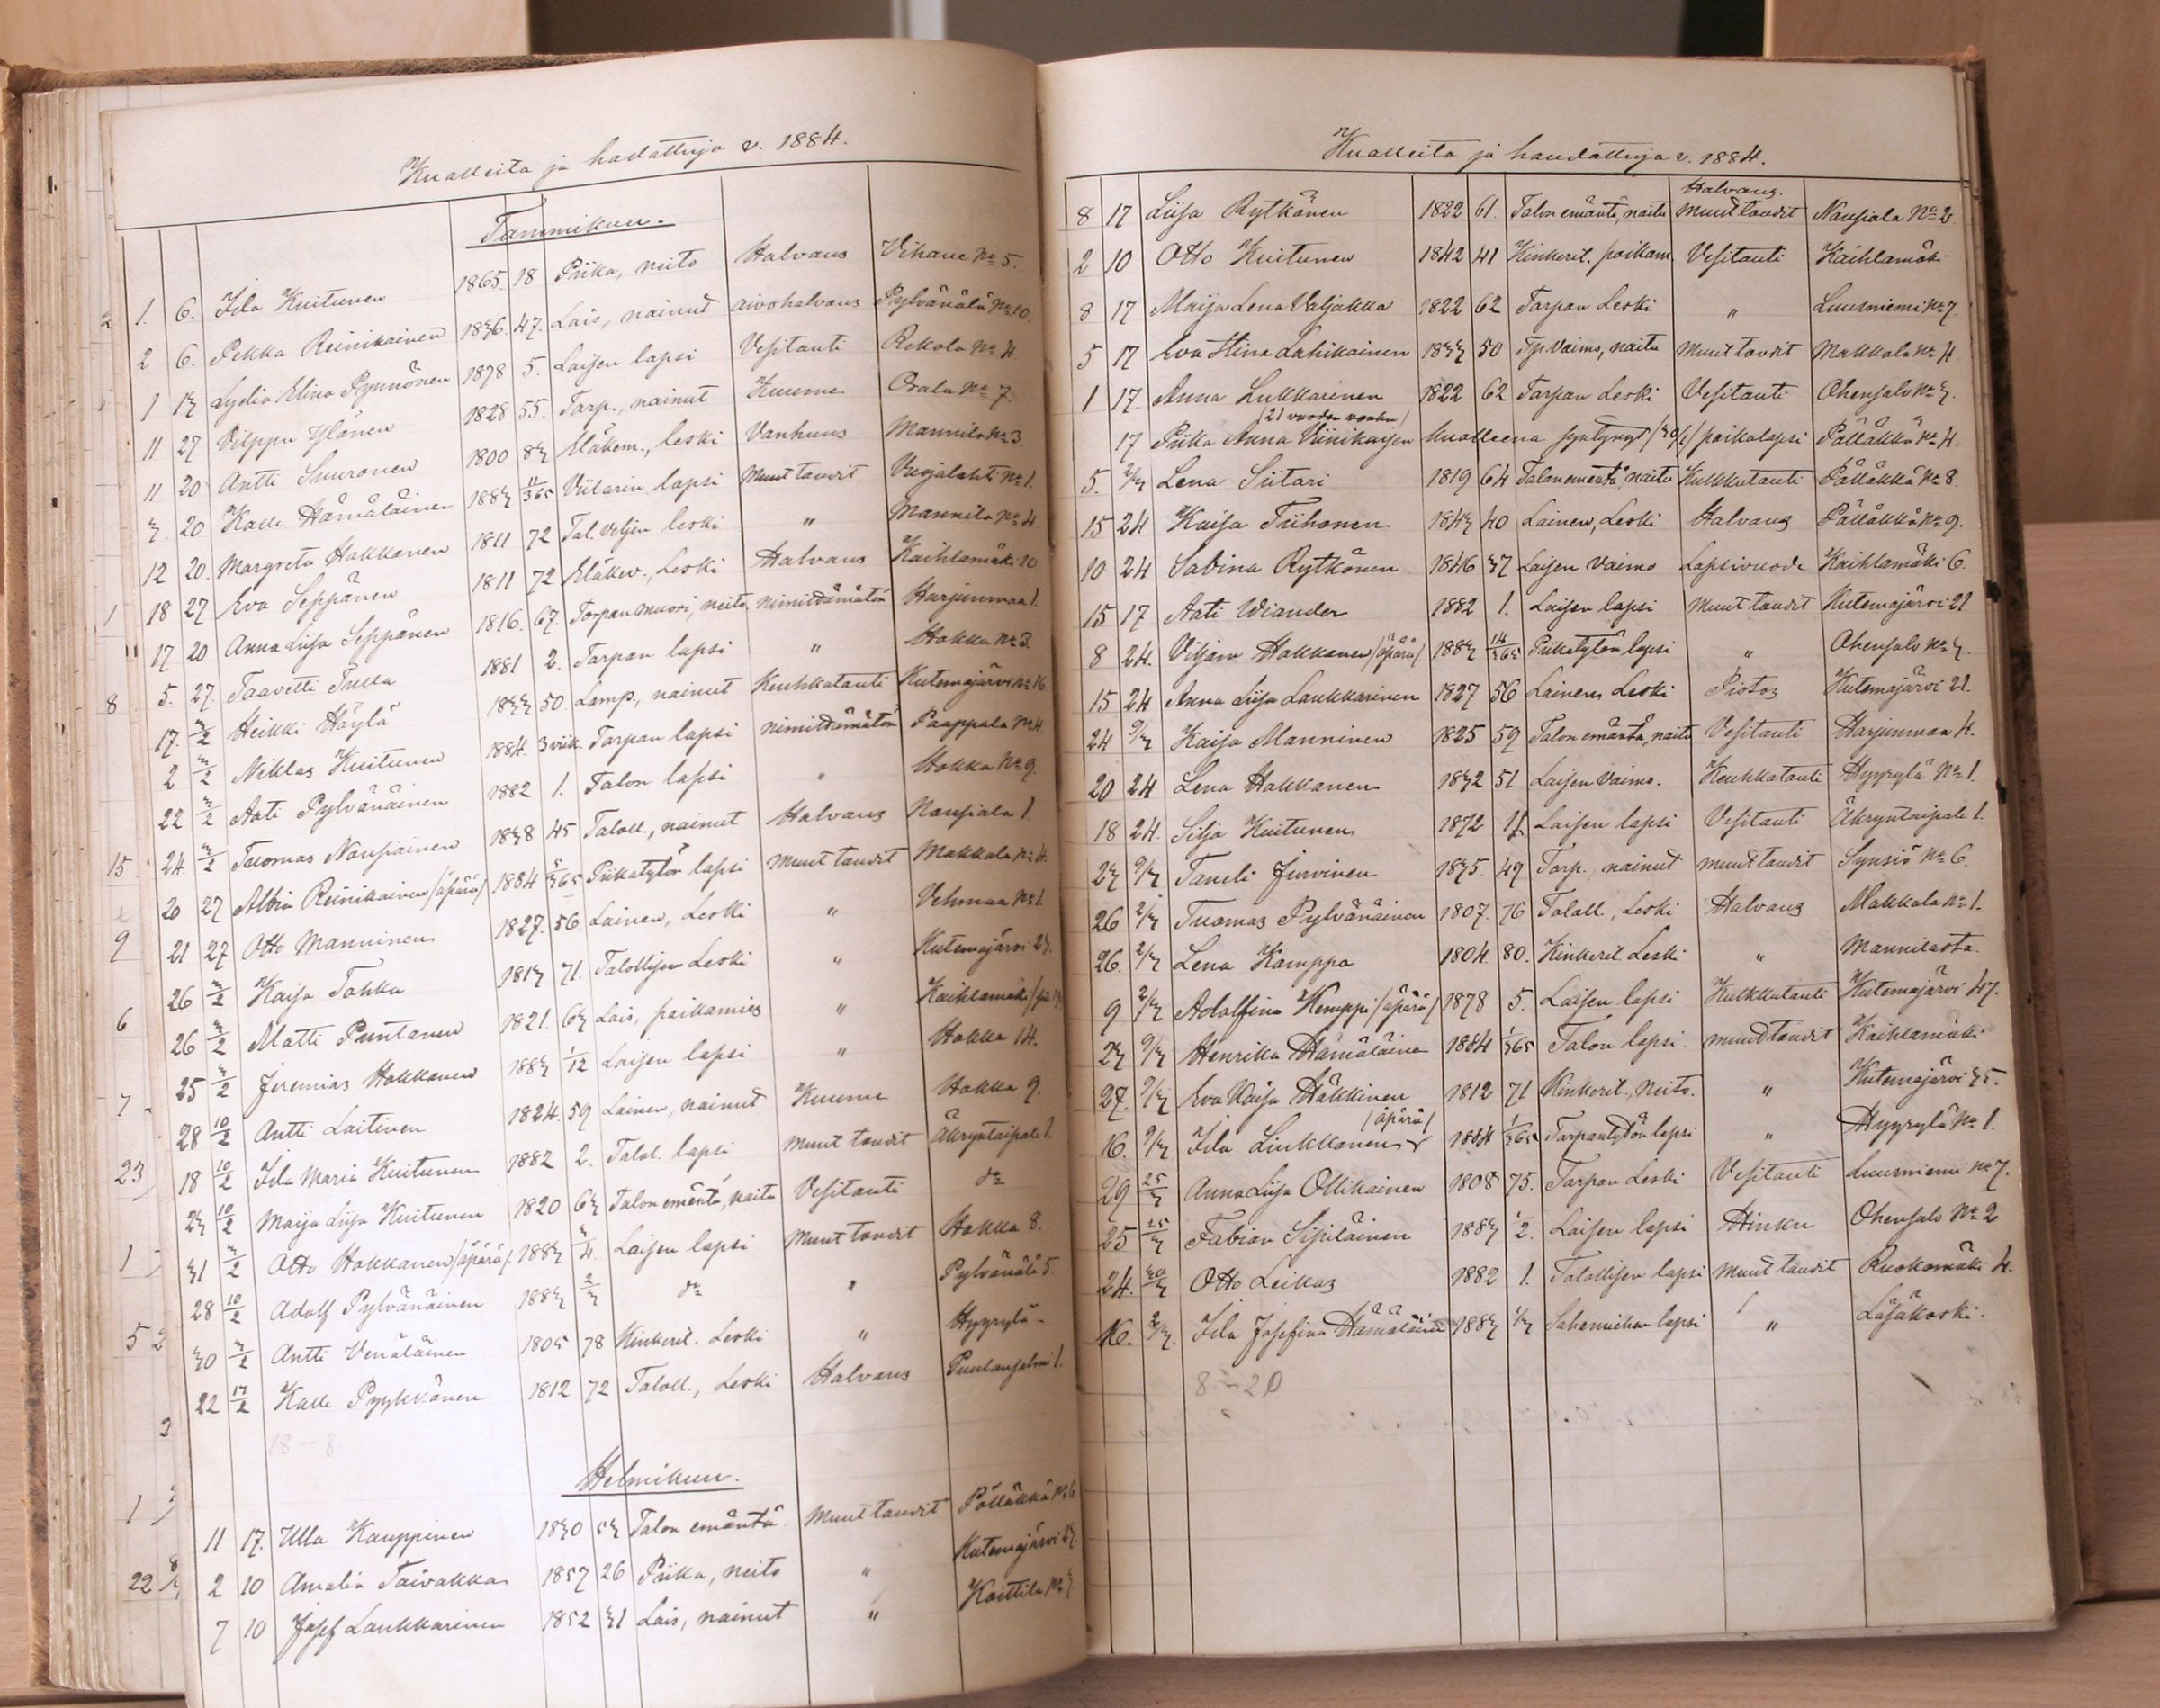 Kuolleita ja haudattuja v. 1884.
Tammikuu.
1. 6. Ida Kuitunen 1865. 18 Piika, neito Halvaus Vihane No 5.
2 6. Pekka Reinikainen 1836. 47. Lais, nainut aivohalvaus Pylvänälä No 10
1 13 Lydia Elina Pynnönen 1878 5. Laisen lapsi Vesitauti Rekola No 4
11 27 Vilppu Ylönen 1828 55. Torp., nainut Kuume Orala No 7.
11 20 Antti Suuronen 1800 83 Eläkem., leski Vanhuus Mannila No 3
3. 20 Kalle Hämäläinen 1883 11/365 Viitarin lapsi Muut taudit Vuojalahti No 1.
12 20. Margreta Hokkanen 1811 72 Tal. veljen leski " Mannila No 4.
18 27 Eva Seppänen 1811 72 Eläkev., Leski Halvaus Kaihlamäki 10
17 20 Anna Liisa Seppänen 1816. 67. Torpan muori, neito nimittämätön Harjunmaa 1.
5. 27. Taavetti Tulla 1881 2. Torpan lapsi " Hokka No 3.
17. 3/2 Heikki Höylä 1833 50. Lamp., nainut Keuhkotauti Kutemajärvi No 16
2 3/2 Niklas Kuitunen 1884. 3 viik. Torpan lapsi nimittämätön Paappala No 4.
22 3/2 Aati Pylvänäinen 1882 1. Talon lapsi " Hokka No 9.
24 3/2 Tuomas Nousiainen 1838 45 Taloll., nainut Halvaus Nousiala 1.
20 27 Albin Reinikainen /äpärä/ 1884 5/365 Piikatytön lapsi Muut taudit Makkola No 4.
21 27 Otto Manninen 1827. 56. Lainen, Leski " Vehmaa No 1.
26 3/2 Kaisa Tohka 1813 71. Talollisen Leski " Kutemajärvi 23.
26 3/2 Matti Puntanen 1821. 63 Lais, paikamies " Kaihlamäki
25 3/2 Jeremias Hokkanen 1883 1/12 Laisen lapsi " Hokka 14.
28 10/2 Antti Laitinen 1824. 59 Lainen, nainut Kuume Hokka 9.
18 10/2 Ida Maria Kuitunen 1882 2. Talol. lapsi Muut taudit Äkryntaipale 1.
23 10/2 Maija Liisa Kuitunen 1820 63 Talon emäntä, naitu Vesitauti do
31 3/2 Otto Hokkanen /äpärä/. 1883 3/4. Laisen lapsi Muut taudit Hokka 8.
28 10/2 Adolf Pylvänäinen 1883 2/3 do " Pylvänälä 5.
30 3/2 Antti Venäläinen 1805 78 Kinkeril. Leski " Hyyrylä
22 17/2 Kalle Pyykkönen 1812 72 Taloll., Leski Halvaus Puulansalmi 1.
18 – 8
Helmikuu.
11 17. Ulla Kauppinen 1830 53 Talon emäntä Muut taudit Pölläkkä No 6
2 10 Amalia Taivakka 1857 26 Piika, neito " Kutemajärvi 23.
7 10 Josef Laukkarinen 1852 31 Lais, nainut " Koittila No 3
Kuolleita ja haudattuja v. 1884.
8 17 Liisa Rytkönen 1822 61. Talon emäntä, naitu Halvaus. Muut taudit Nousiala No 2.
2 10 Otto Kuitunen 1842 41 Kinkeril. poikam. Vesitauti Kaihlamäki
8 17 Maija Lena Valjakka 1822 62 Torpan Leski " Luusniemi No 7.
5 17 Eva Stina Lahikainen 1833 50 Tp. vaimo, naitu Muut taudit Makkola No 4.
1 17. Anna Lukkarinen 1822 62 Torpan Leski Vesitauti Ohensalo No 3.
/21 vuoden vanha/
17 Piika Anna Viinikaisen kuolleena syntynyt /30/1/ poikalapsi Pölläkkä No 4.
5. 2/3 Lena Siitari 1819 64 Talon emäntä, naitu Kulkkutauti Pölläkkä No 8.
15 24 Kaisa Tiihonen 1843 40 Lainen, Leski Halvaus Pölläkkä No 9.
10 24 Sabina Rytkönen 1846 37 Laisen vaimo Lapsivuode Kaihlamäki 6.
15 17 Aati Wiander 1882 1. Laisen lapsi Muut taudit Kutemajärvi 21
8 24. Viljam Hokkanen /äpärä/ 1883 14/365 Piikatytön lapsi " Ohensalo No 3.
15 24 Anna Liisa Laukkarinen 1827 56 Lainen Leski Pistos Kutemajärvi 21.
24 9/3 Kaisa Manninen 1825 59 Talon emäntä, naitu Vesitauti Harjunmaa 4.
20 24 Lena Hokkanen 1832 51 Laisen vaimo. Keuhkotauti Hyyrylä No 1.
18 24. Silja Kuitunen 1872 11. Laisen lapsi Vesitauti Äkryntaipale 1.
23 9/3 Taneli Jurvinen 1835. 49 Torp., nainut muut taudit Synsiö No 6.
26 2/3 Tuomas Pylvänäinen 1807. 76 Taloll., Leski Halvaus Makkola No 1.
26. 2/3 Lena Kamppa 1804. 80. Kinkeril Leski " Mannilasta.
9 2/3 Adolfina Kemppi /äpärä/ 1878 5. Laisen lapsi Kulkkutauti Kutemajärvi 47.
23 9/3 Henrika Hämäläinen 1884 1/365 Talon lapsi. muut taudit Kaihlamäki
27. 9/3 Eva Kaisa Häkkinen 1812 71 Kinkeril., Neito. " Kutemajärvi 35.
/äpärä/
16. 9/3 Ida Liukkonen 1884 1/365 Torpantytön lapsi " Hyyrylä No 1.
29 25/3 Anna Liisa Ollikainen 1808 75. Torpan Leski Vesitauti Luusniemi No 7.
25 25/3 Fabian Sipiläinen 1883 1/2. Laisen lapsi Hinku Ohensalo No 2
24. 30/3 Otto Leikas 1882 1. Talollisen lapsi Muut taudit Ruokomäki 4.
16. 2/3. Ida Josefina Hämäläinen 1883 1/3 Sahamiehen lapsi " Läsäkoski.
8 – 20